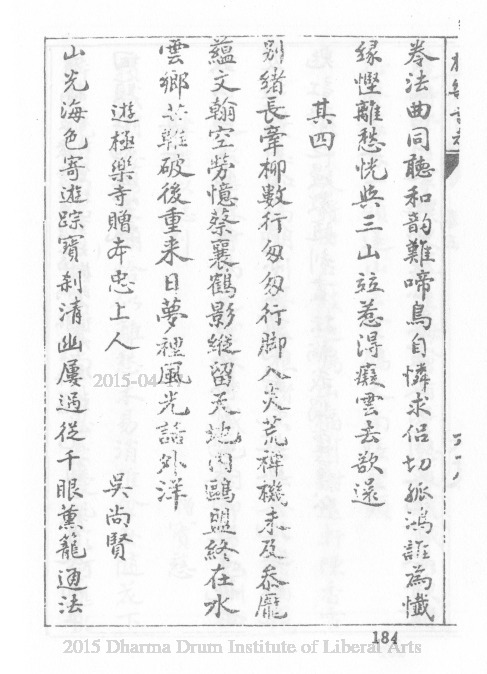 拳法曲同聽和韵難啼鳥自憐求侶切孤鴻誰為懺
緣慳離愁恍與三山竝惹得癡雲去欲還
其四
別緒長牽柳數行匆匆行脚入炎荒裨機未及叅龐
蘊文翰空勞憶蔡襄鶴影縱留天地間鷗盟終在水
雲鄉芒鞵破後重来日夢裡風光話外洋
遊極樂寺贈本忠上人
吳尚賢
山光海色寄遊踪寶刹清幽屢過從千眼薰籠通法
184
2015-04-
2015 Dharma Drum Institute of Liberal Arts